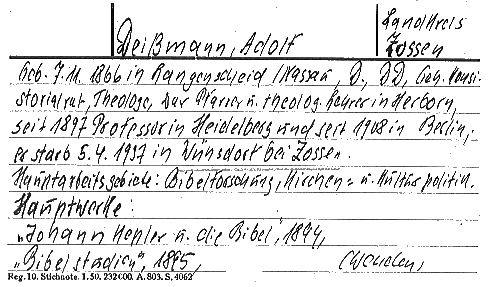 Deißmann, Adolf
Landkreis
Zossen
Geb. 7.11.1866 in Langenscheid/Nassau, D., DD, Geh. Konsi-
storialrat, Theologe, war Pfarrer u. theolog. Lehrer in Herborn,
seit 1897 Professor in Heidelberg und seit 1908 in Berlin,
er starb 5.4.1937 in Wünsdorf bei Zossen.
Hauptarbeitsgebiete: Bibelforschung, Kirchen= u. Kulturpolitik.
Hauptwerke:
„Johann Kepler u. die Bibel", 1894,
„Bibelstudien", 1895,
(Wenden)
Reg. 10. Stichnote. 1. 50. 232600. A. 803. S. 4062